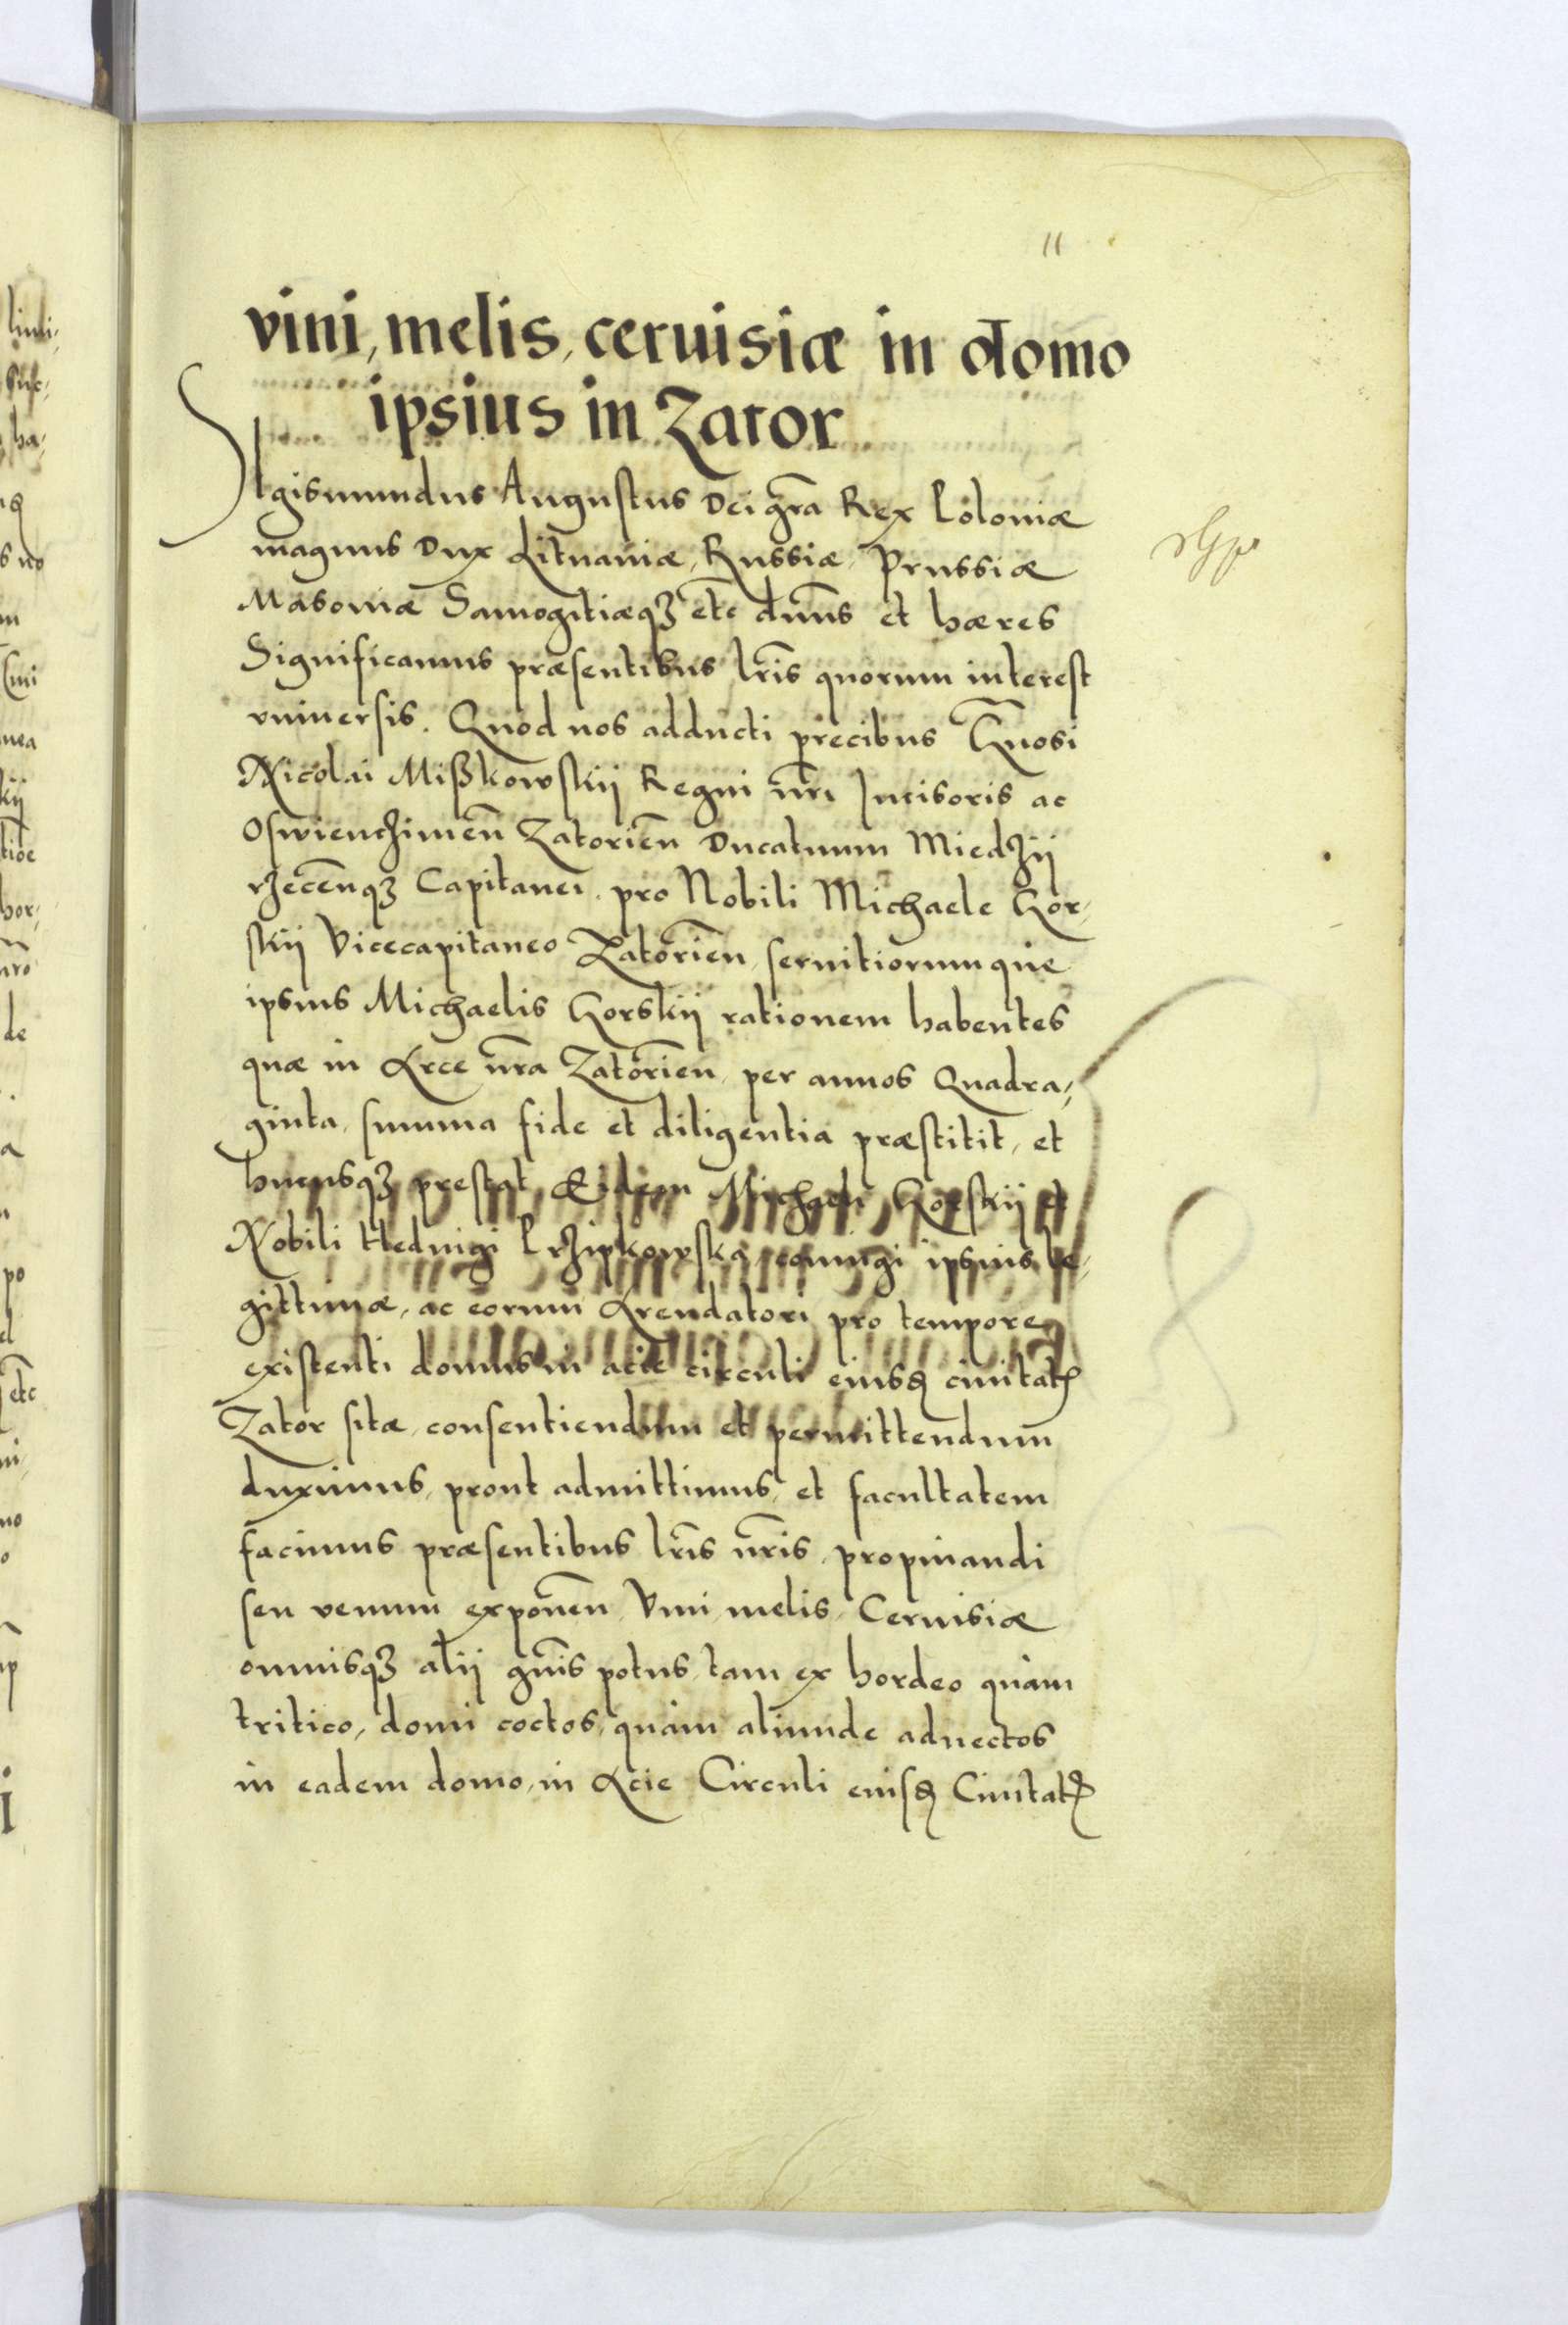 11
vini, melis, ceruisiæ in domo
ipsius in Zator
Sigismundus Augustus Dei gr̃a Rex Poloniæ
magnus Dux Lituaniæ, Russiæ, Prussiæ
Masoviæ Samogitiæqꝫ etc̃ dnũs et hæres
Significamus præsentibus lr̃is quorum interest
vniuersis. Quod nos adducti precibus Gn̄osi
Nicolai Mißkowskij Regni nr̃i Incisoris ac
Oswienczimeñ Zatorieñ Ducatuum Miedzij
rzeceñqꝫ Capitanei, pro Nobili Michaele Gor,
skij Vicecapitaneo Zatorieñ, seruitiorumque
ipsius Michaelis Gorskij rationem habentes
quæ in Arce nr̃a Zatorieñ, per annos Quadra,
ginta, summa fide et diligentia præstitit, et
hucusqꝫ prestat, Eidem Michaeli Gorskij et
Nobili Heduigi Przipkowska, coniugi ipsius le,
gittimæ, ac eorum Arendatori pro tempore
existenti domus in acie circuli eiusđ ciuitatꝭ
Zator sitæ, consentiendum et permittendum
duximus, prout admittimus, et facultatem
facimus præsentibus lr̃is nr̃is, propinandi
seu venum exponeñ, Vini, melis, Ceruisiæ
omnisqꝫ alij gñis potus, tam ex hordeo quàm
tritico, domi coctos, quàm aliunde aduectos
in eadem domo, in Acie Circuli eiusđ Ciuitatꝭ